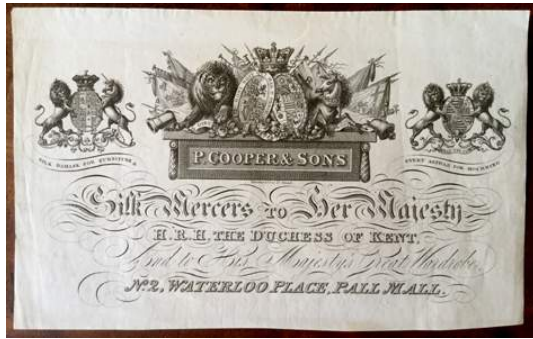 SILK DAMASK FOR FURNITURE.
EVERY ARTICLE FOR MOURNING.
P. COOPER & SONS
Silk Mercers to Her Majesty
H.R.H. THE DUCHESS OF KENT,
And to His Majesty's Great Wardrobe,
No. 2, WATERLOO PLACE, PALL MALL.